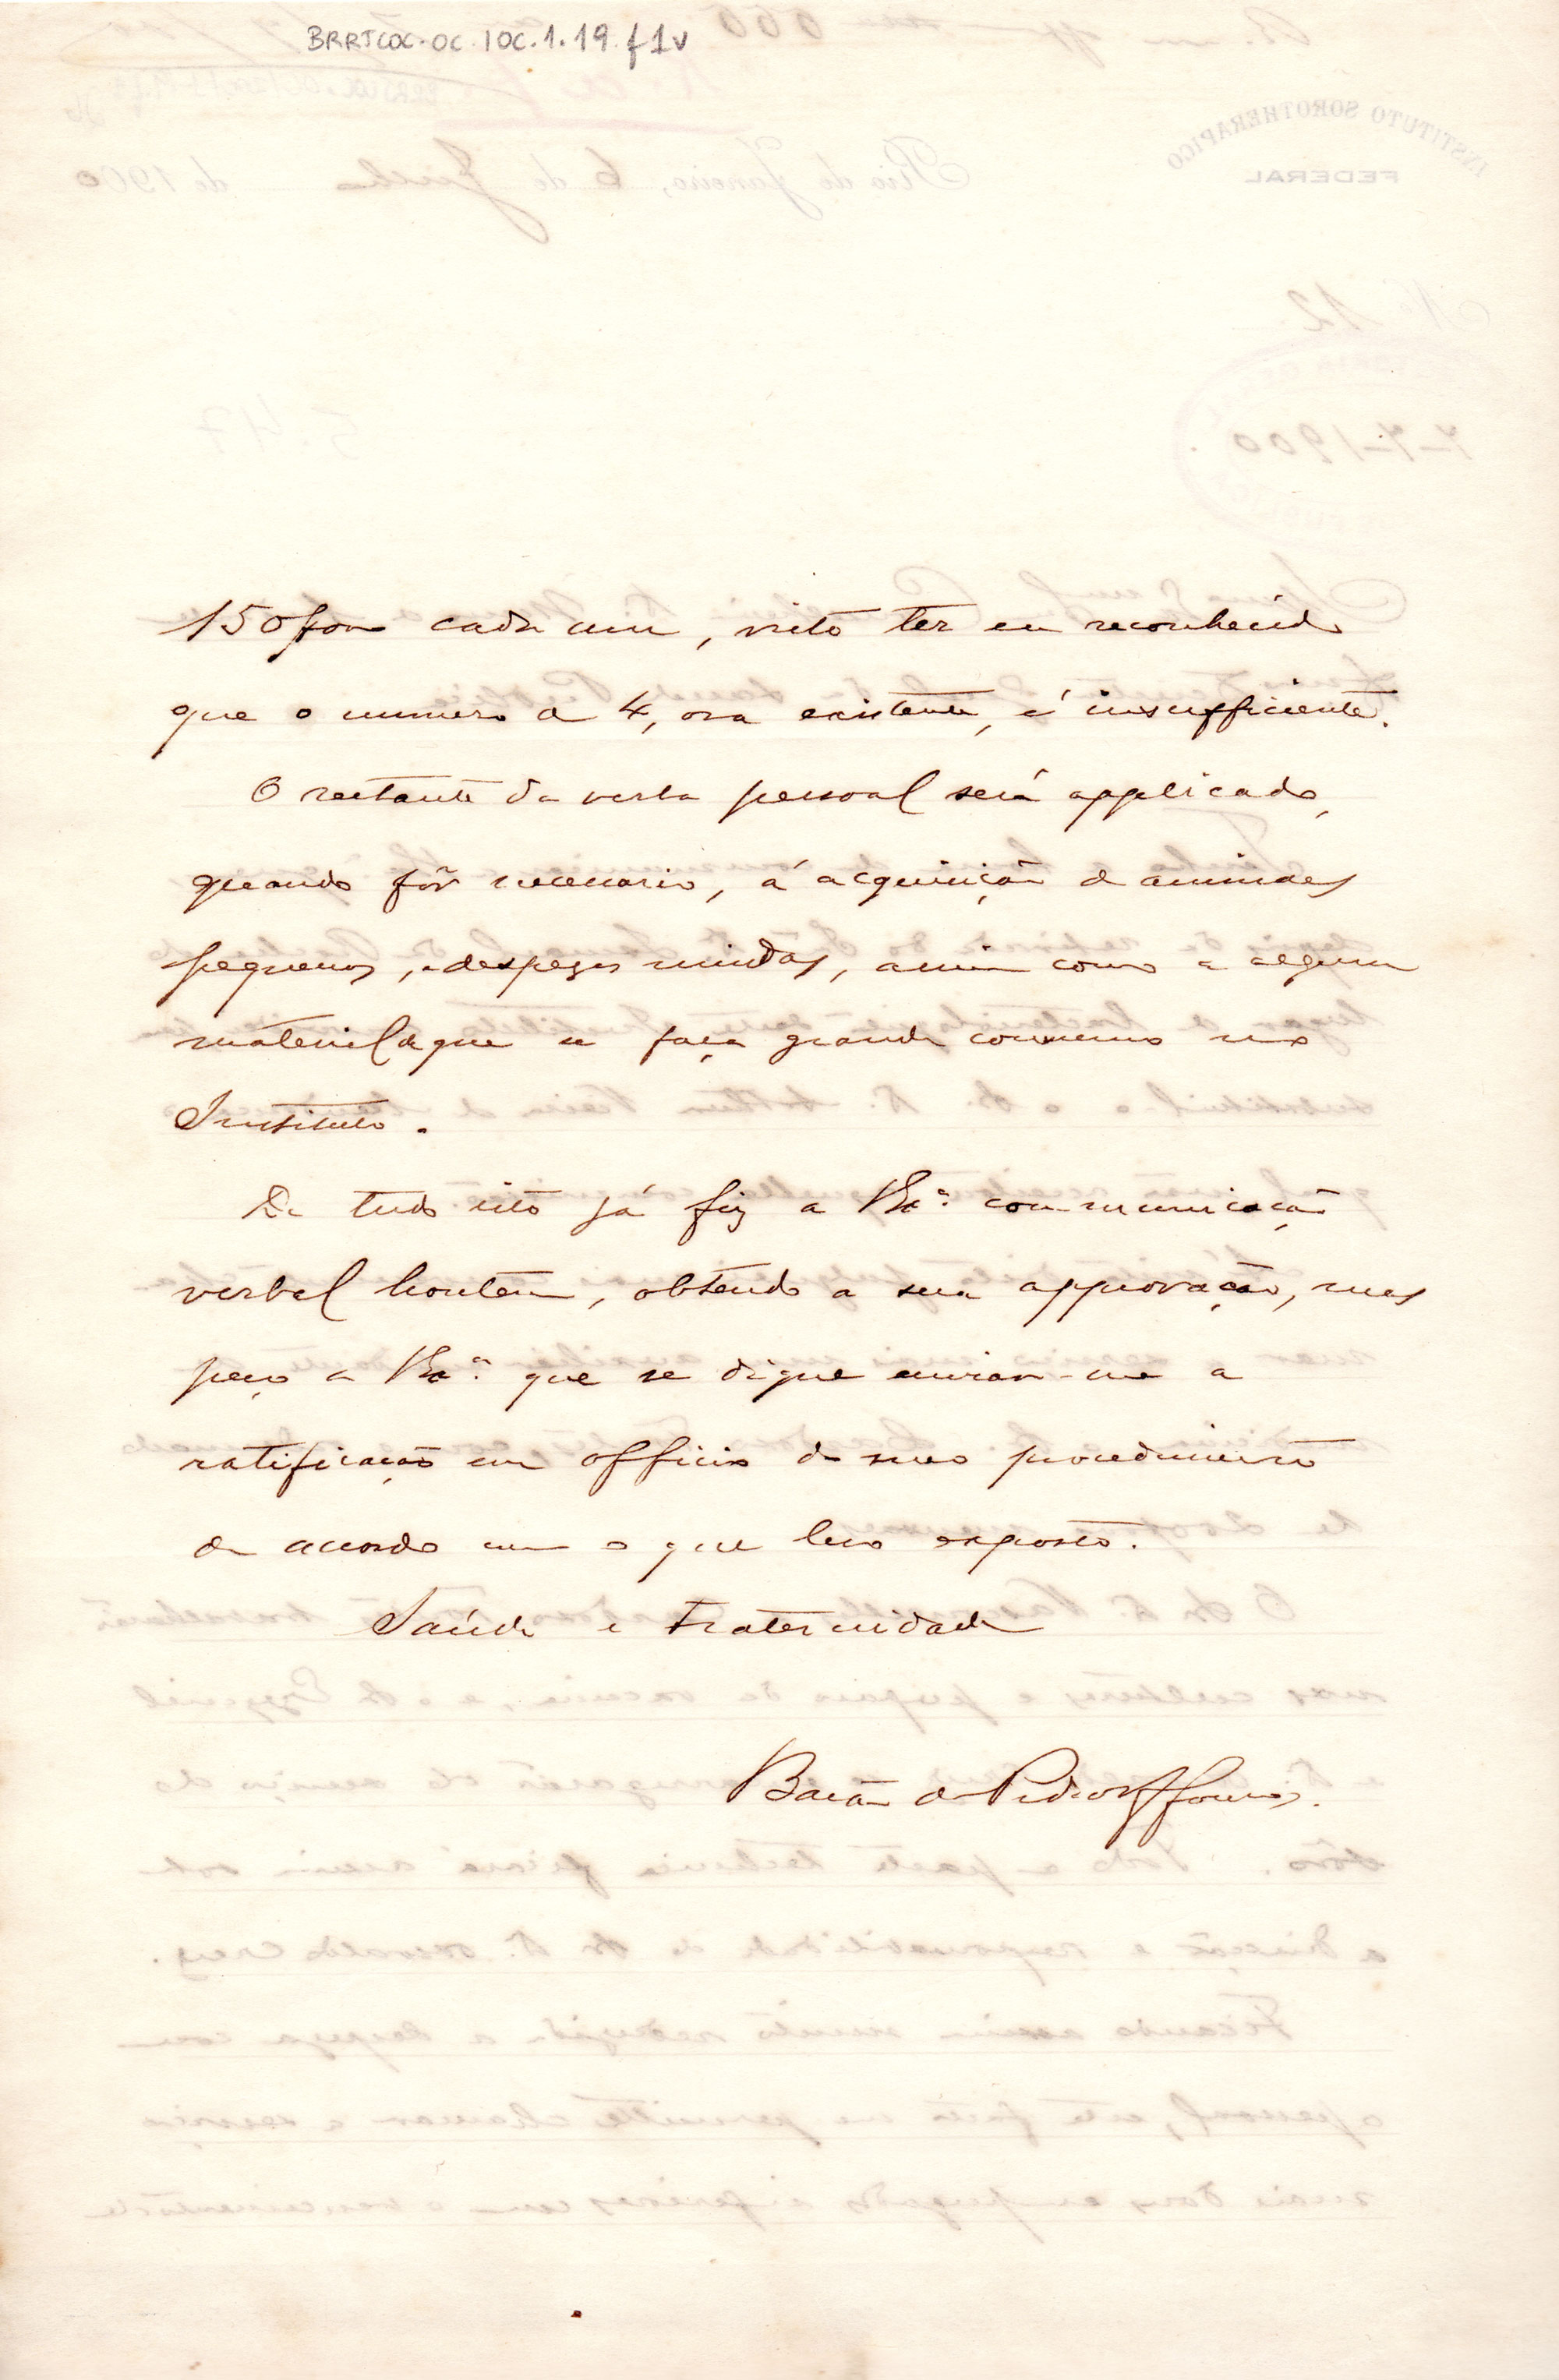 BRRJCOC-OC.IOC.1.19.f1v
150$000 cada um, visto ter eu reconhecido
que o numero de 4, ora existente, é insufficiente.
O restante da verba pessoal será applicado,
quando fôr necessario, á acquisição de animaes
pequenos, e despezas miudas, assim como a algum
material de que se faça grande consumo no
Instituto.
De tudo isto já fiz a V. Exª. communicação
verbal hontem, obtendo a sua approvação, mas
peço a V. Exª. que se digne enviar-me a
ratificação em officio do meu procedimento
de accordo com o que levo exposto.
Saúde e Fraternidade
Barão de Pedro Affonso.